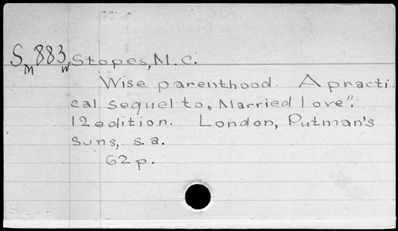 S 883 Stopes, M.C.
M W
Wise parenthood. A practi-
cal sequel to „Married Love".
12 edition. London, Putman's
suns, s.a.
62 p.